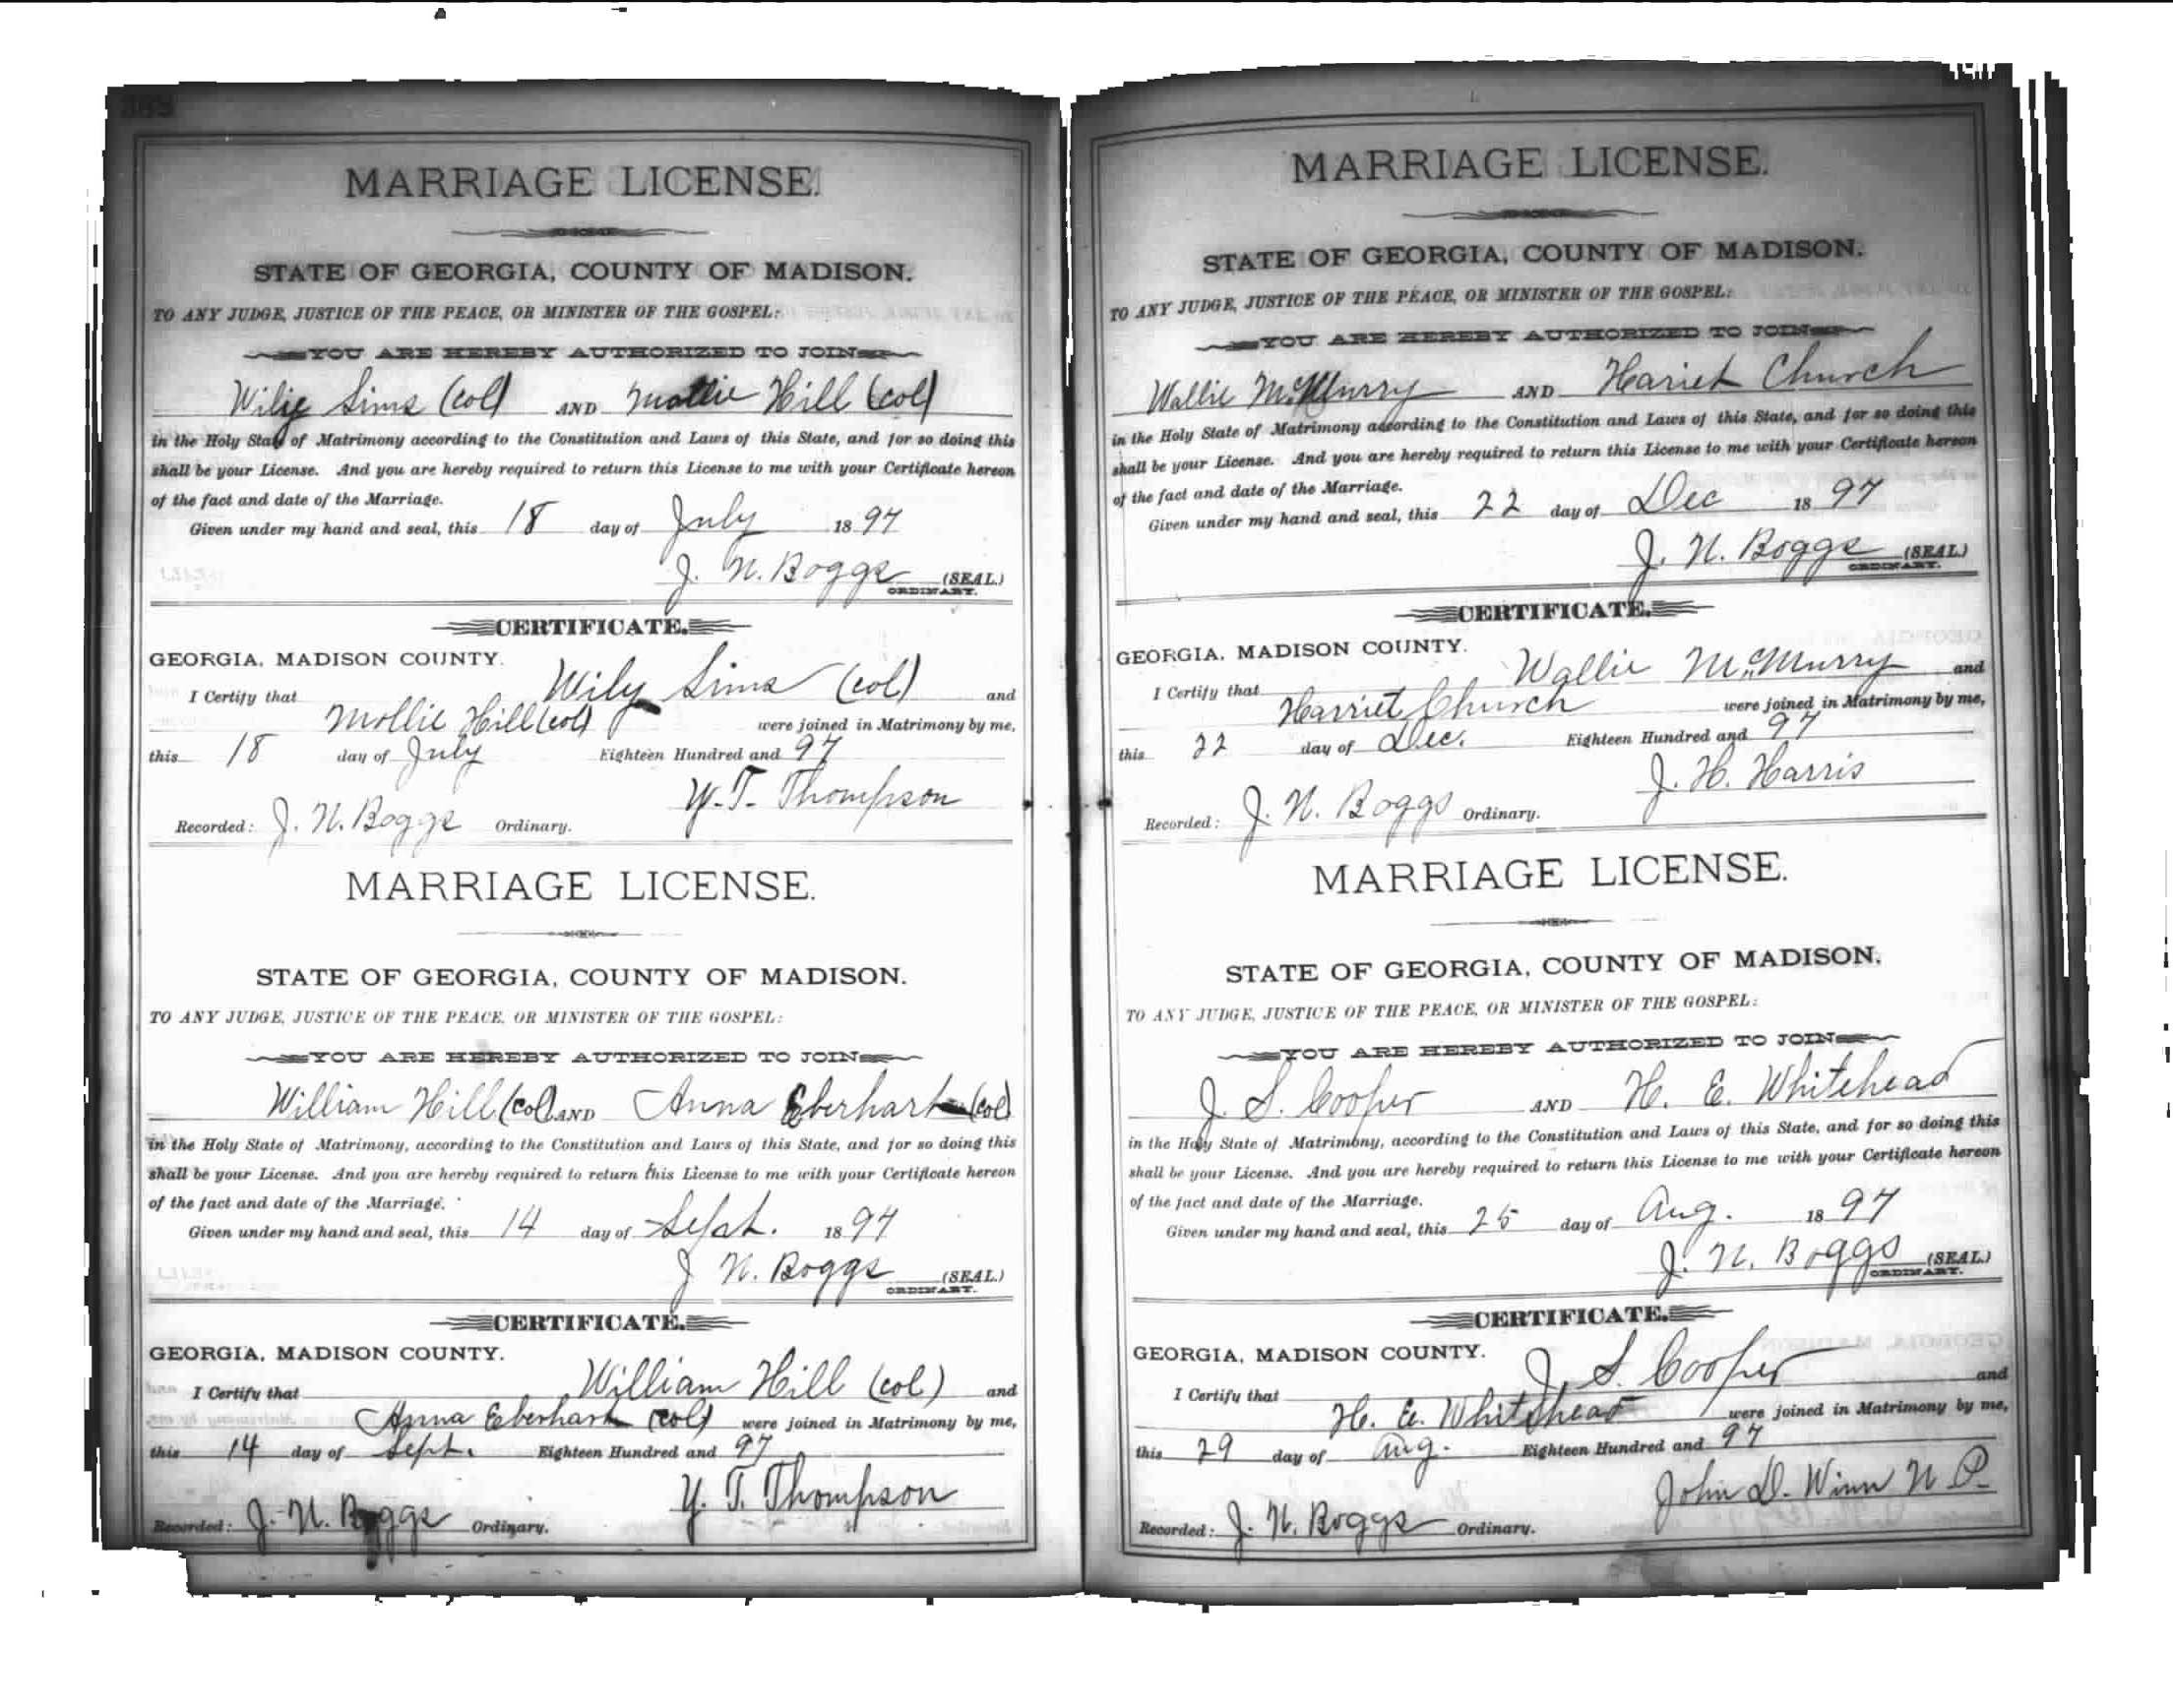 MARRIAGE LICENSE.
STATE OF GEORGIA, COUNTY OF MADISON.
TO ANY JUDGE, JUSTICE OF THE PEACE, OR MINISTER OF THE GOSPEL:
YOU ARE HEREBY AUTHORIZED TO JOIN
Wiliy Sims (col) AND Mollie Hill (col)
in the Holy State of Matrimony according to the Constitution and Laws of this State, and for so doing this
shall be your License. And you are hereby required to return this License to me with your Certificate hereon
of the fact and date of the Marriage.
Given under my hand and seal, this 18 day of July 1897
J. N. Boggs (SEAL.)
ORDINARY.
CERTIFICATE.
GEORGIA, MADISON COUNTY.
I Certify that Wily Sims (col) and
Mollie Hill (col) were joined in Matrimony by me,
this 18 day of July Eighteen Hundred and 97
W. T. Thompson
Recorded: J. N. Boggs Ordinary.
MARRIAGE LICENSE.
STATE OF GEORGIA, COUNTY OF MADISON.
TO ANY JUDGE, JUSTICE OF THE PEACE, OR MINISTER OF THE GOSPEL:
YOU ARE HEREBY AUTHORIZED TO JOIN
William Hill (col) AND Anna Eberhart (col)
in the Holy State of Matrimony, according to the Constitution and Laws of this State, and for so doing this
shall be your License. And you are hereby required to return this License to me with your Certificate hereon
of the fact and date of the Marriage.
Given under my hand and seal, this 14 day of Sept. 1897
J N. Boggs (SEAL.)
ORDINARY.
CERTIFICATE.
GEORGIA, MADISON COUNTY.
I Certify that William Hill (col) and
Anna Eberhart (col) were joined in Matrimony by me,
this 14 day of Sept. Eighteen Hundred and 97
Y. T. Thompson
Recorded: J. N. Boggs Ordinary.
MARRIAGE LICENSE.
STATE OF GEORGIA, COUNTY OF MADISON.
TO ANY JUDGE, JUSTICE OF THE PEACE, OR MINISTER OF THE GOSPEL:
YOU ARE HEREBY AUTHORIZED TO JOIN
Wallie McMurry AND Hariet Church
in the Holy State of Matrimony according to the Constitution and Laws of this State, and for so doing this
shall be your License. And you are hereby required to return this License to me with your Certificate hereon
of the fact and date of the Marriage.
Given under my hand and seal, this 22 day of Dec 1897
J. N. Boggs (SEAL.)
ORDINARY.
CERTIFICATE.
GEORGIA, MADISON COUNTY.
I Certify that Wallie McMurry and
Harriet Church were joined in Matrimony by me,
this 22 day of Dec. Eighteen Hundred and 97
J. H. Harris
Recorded: J. N. Boggs Ordinary.
MARRIAGE LICENSE.
STATE OF GEORGIA, COUNTY OF MADISON.
TO ANY JUDGE, JUSTICE OF THE PEACE, OR MINISTER OF THE GOSPEL:
YOU ARE HEREBY AUTHORIZED TO JOIN
J. S. Cooper AND H. E. Whitehead
in the Holy State of Matrimony, according to the Constitution and Laws of this State, and for so doing this
shall be your License. And you are hereby required to return this License to me with your Certificate hereon
of the fact and date of the Marriage.
Given under my hand and seal, this 25 day of Aug. 1897
J. N. Boggs (SEAL.)
ORDINARY.
CERTIFICATE.
GEORGIA, MADISON COUNTY.
I Certify that J. S. Cooper and
H. E. Whitehead were joined in Matrimony by me,
this 29 day of Aug. Eighteen Hundred and 97
John D. Winn N P.
Recorded: J. N. Boggs Ordinary.